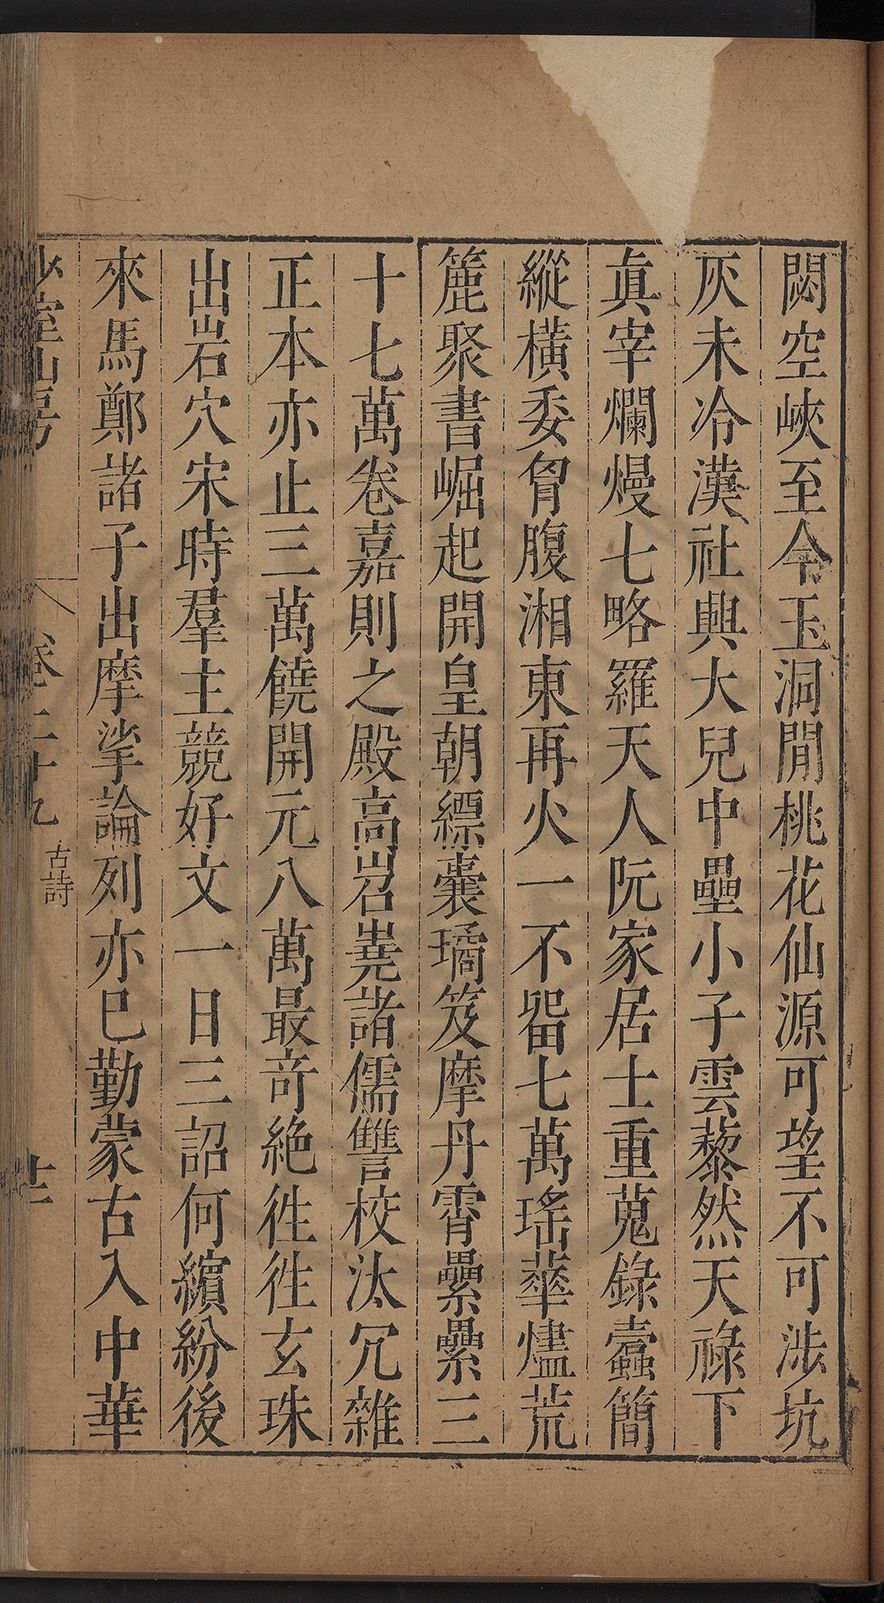 閟空峽至今玉洞閒桃花仙源可望不可涉坑
灰未冷漢社興大兒中壘小子雲藜然天祿下
眞宰爛熳七略羅天人阮家居士重蒐錄蠹簡
縱橫委胷腹湘東再火一不畱七萬瑤華燼荒
簏聚書崛起開皇朝縹囊璚笈摩丹霄纍纍三
十七萬卷嘉則之殿高岧嶤諸儒讐校汰冗雜
正本亦止三萬饒開元八萬最竒絶徃徃玄珠
出岩穴宋時羣主競好文一日三詔何繽紛後
來馬鄭諸子出摩挲論列亦巳勤蒙古入中華
少室山房
卷二十九
古詩